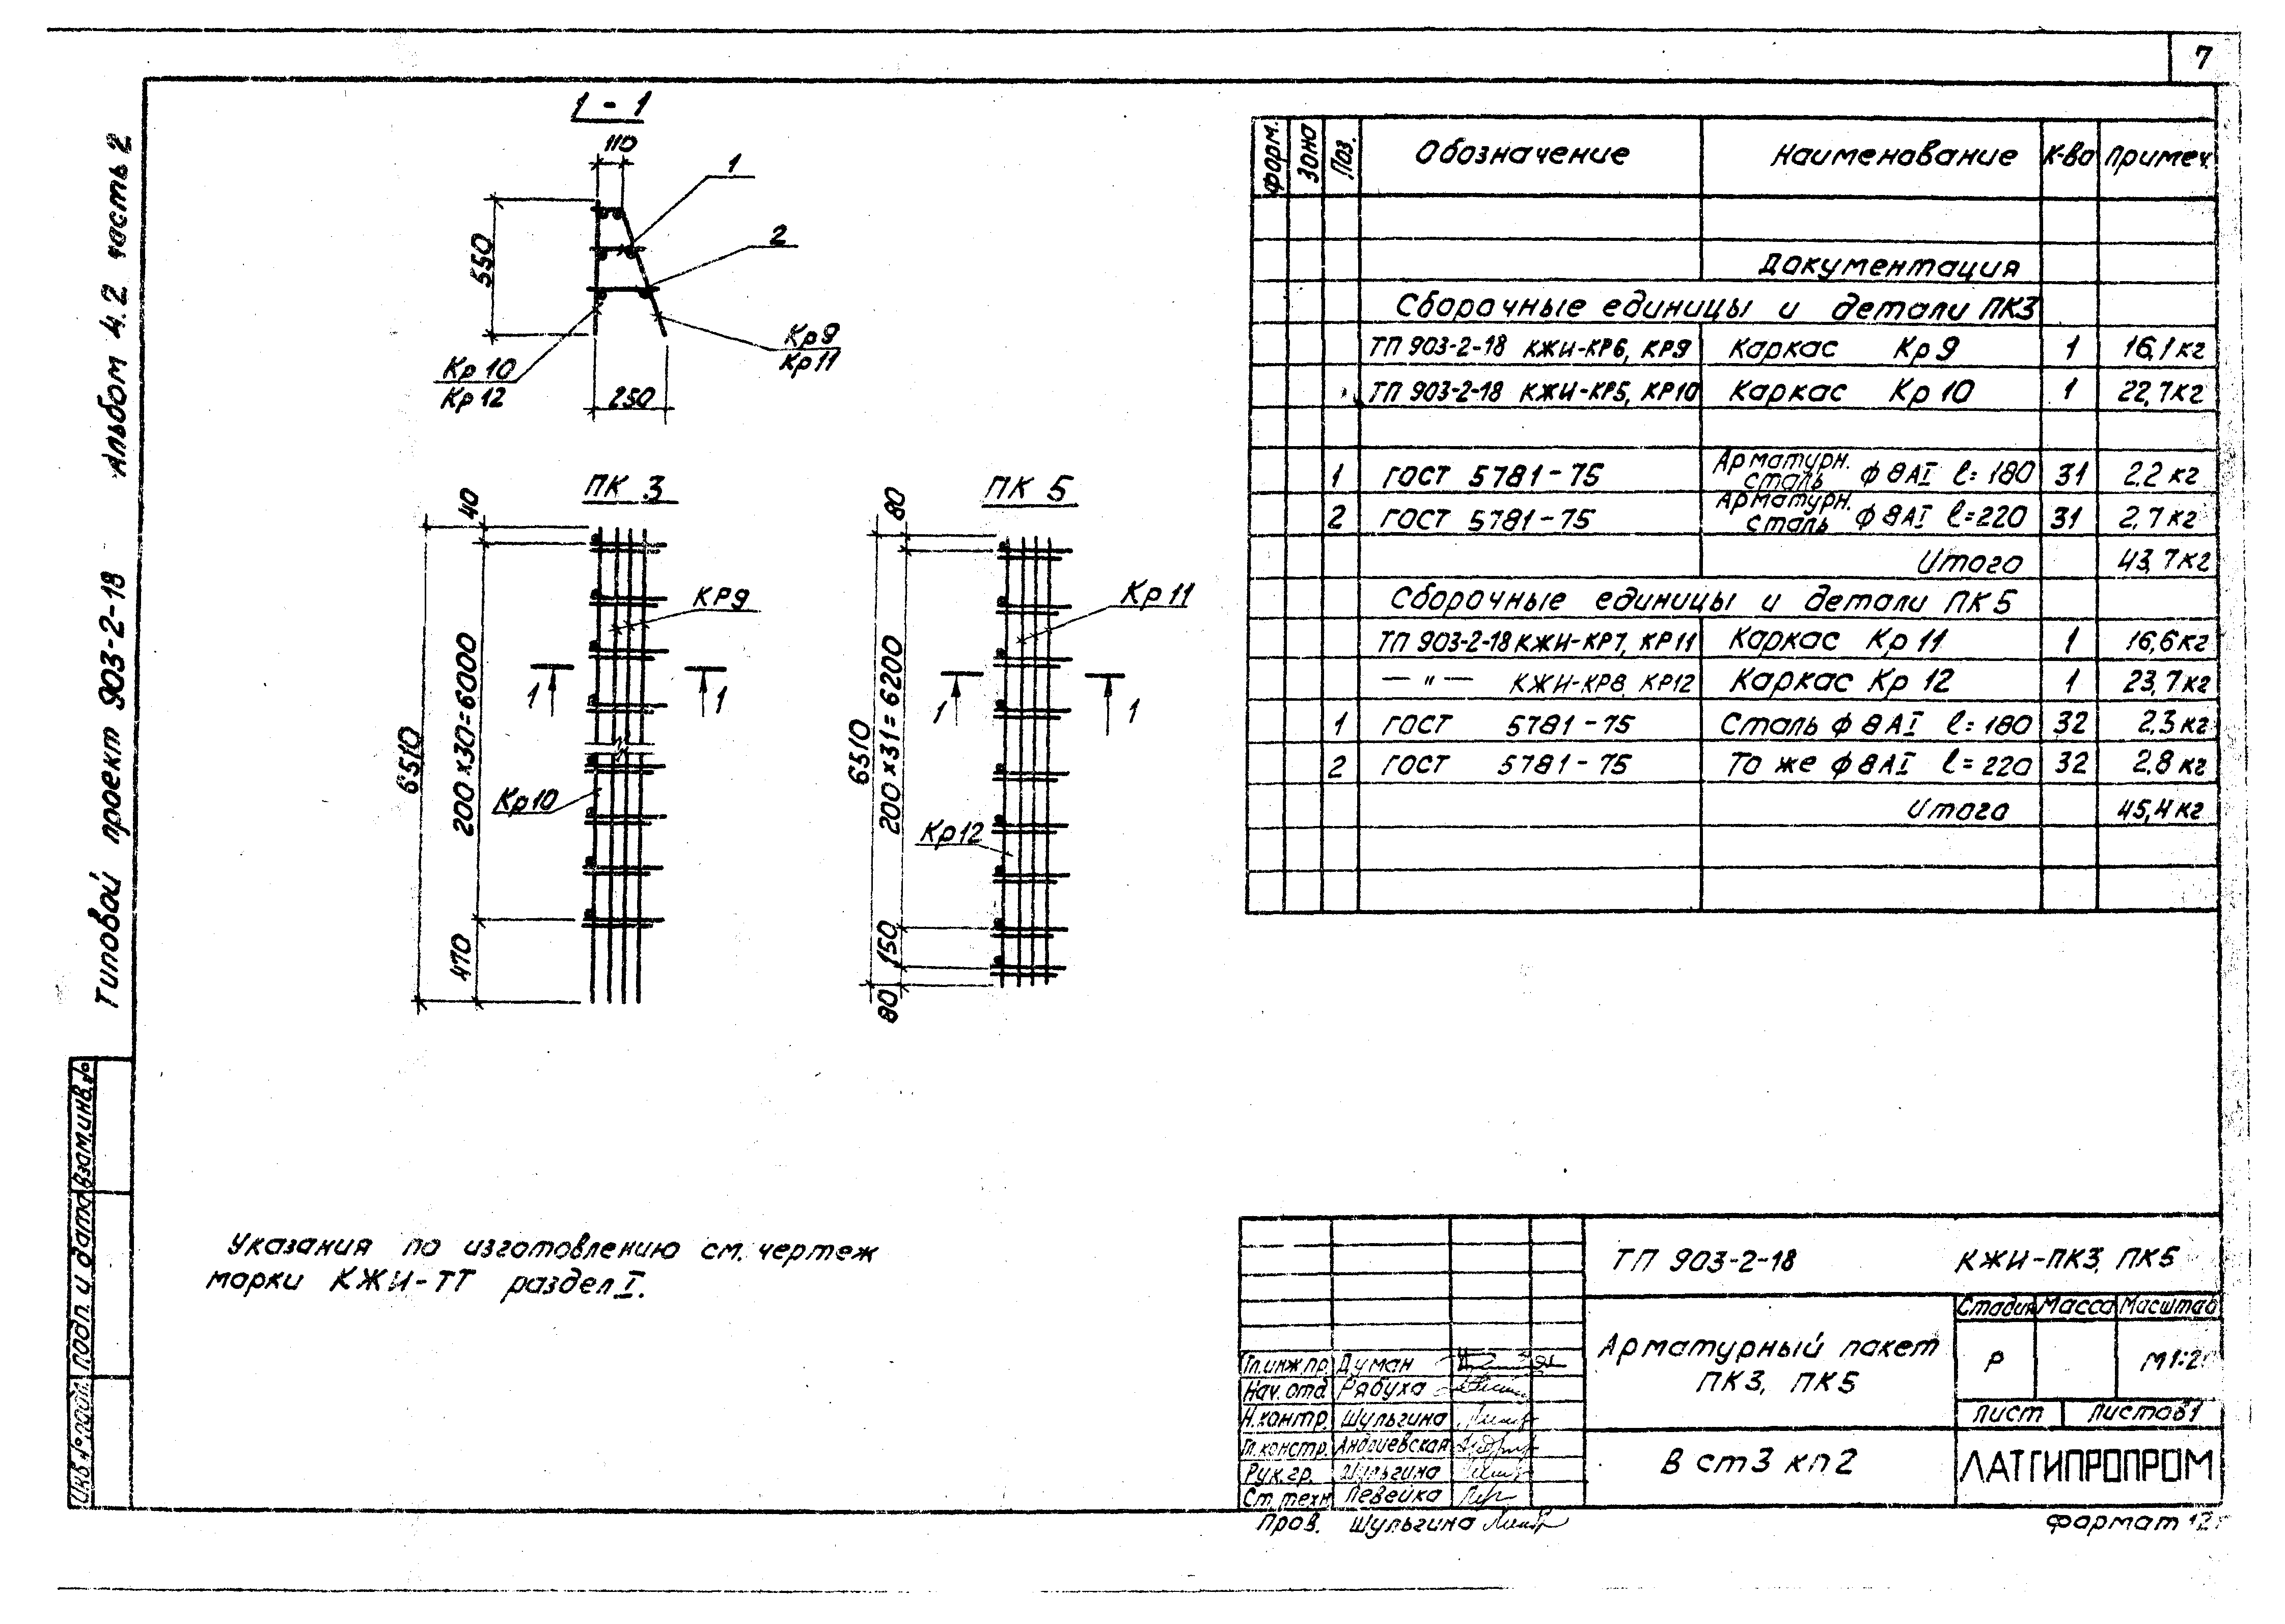 7
Типовой проект 903-2-18 Альбом 4.2 часть 2
1-1
110
1
2
550
Кр 9
Кр 11
Кр 10
Кр 12
250
ПК 3
40
6510
200×30=6000
470
КР9
Кр10
1
1
ПК 5
80
6510
200×31=6200
150
80
Кр 11
Кр 12
1
1
Форм. Зона Поз. Обозначение Наименование К-во Примеч.
Документация
Сборочные единицы и детали ПК3
ТП 903-2-18 КЖИ-КР6, КР9 Каркас Кр 9 1 16,1 кг
ТП 903-2-18 КЖИ-КР5, КР10 Каркас Кр 10 1 22,7 кг
1 ГОСТ 5781-75 Арматурн. сталь ф 8АI ℓ=180 31 2,2 кг
2 ГОСТ 5781-75 Арматурн. сталь ф 8АI ℓ=220 31 2,7 кг
Итого 43,7 кг
Сборочные единицы и детали ПК5
ТП 903-2-18 КЖИ-КР7, КР11 Каркас Кр 11 1 16,6 кг
— " — КЖИ-КР8, КР12 Каркас Кр 12 1 23,7 кг
1 ГОСТ 5781-75 Сталь ф 8АI ℓ=180 32 2,3 кг
2 ГОСТ 5781-75 То же ф 8АI ℓ=220 32 2,8 кг
Итого 45,4 кг
Указания по изготовлению см. чертеж
марки КЖИ-ТТ раздел I.
Инв.№подл. Подп. и дата Взам.инв.№
ТП 903-2-18 КЖИ-ПК3, ПК5
Арматурный пакет
ПК3, ПК5
Стадия Масса Масштаб
Р
Лист Листов 1
В ст3 кп2
ЛАТГИПРОПРОМ
Гл.инж.пр. Думан
Нач. отд. Рябуха
Н.контр. Шульгина
Гл.констр. Андриевская
Рук.гр. Шульгина
Ст.техн. Левейка
Пров. Шульгина
Формат 12г